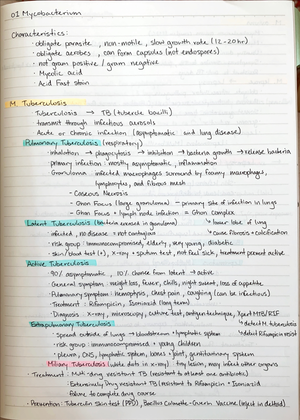 01 Mycobacterium
Characteristics :
· obligate parasite, non-motile, slow growth rate (12-20hr)
· obligate aerobes, can form capsules (not endospores)
· not gram positive / gram negative
· Mycolic acid
· Acid Fast stain
M. Tuberculosis
Tuberculosis → TB (tubercle bacilli)
transmit through infectious aerosols
Acute or Chronic infection (asymptomatic and lung disease)
Pulmonary Tuberculosis (respiratory)
inhalation → phagocytosis → inhibition → bacteria growth → release bacteria
primary infection : mostly asymptomatic, inflammation
Granuloma : infected macrophages surround by foamy macrophages,
lymphocytes, and fibrous mesh
- Caseous Necrosis
- Ghon Focus (large granuloma) - primary site of infection in lungs
- Ghon Focus + lymph node infection = Ghon complex
Latent Tuberculosis (bacteria enclosed in granuloma) lower lobe of lung
infected, no disease = not contagious cause fibrosis + calcification
· risk group : immunocompromised, elderly, very young, diabetic
· skin/blood test (+), X-ray + sputum test, not feel sick, treatment prevent active
Active Tuberculosis
· 90% asymptomatic, 10% chance from latent → active
· General symptom : weight loss, fever, chills, night sweat, loss of appetite
· Pulmonary symptom : Hemoptysis, chest pain, coughing (can be infectious)
· Treatment : Rifampicin, Isoniazid (long term)
· Diagnosis : X-ray, microscopy, culture test, antigen technique, Xpert MTB/RIF
Extrapulmonary Tuberculosis detect M. tuberculosis
· spread outside of lungs → bloodstream + lymphatic system detect Rifampicin resist
· risk group : immunocompromised + young children
· pleura, CNS, lymphatic system, bones + joint, genitourinary system
Miliary Tuberculosis (white dots in x-ray) tiny lesion, may infect other organs
· Treatment : Multi-drug resistant TB (resistant to atleast one antibiotics)
· Extensively Drug resistant TB (resistant to Rifampicin + Isoniazid
failure to complete drug course
· Prevention : Tuberculin Skin test (PPD), Bacillus Calmette-Guerin Vaccine (inject in deltoid)